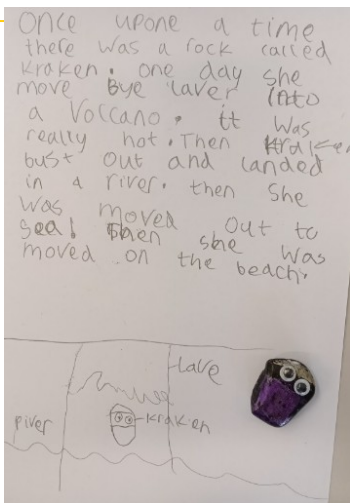 Once upone a time
there was a rock called
Kraken. one day she
move Bye laver into
a Volcano. it was
really hot. Then Kraken
bust out and landed
in a river. then she
was moved out to
sea! then she was
moved on the beach.
Lave
river
Kraken